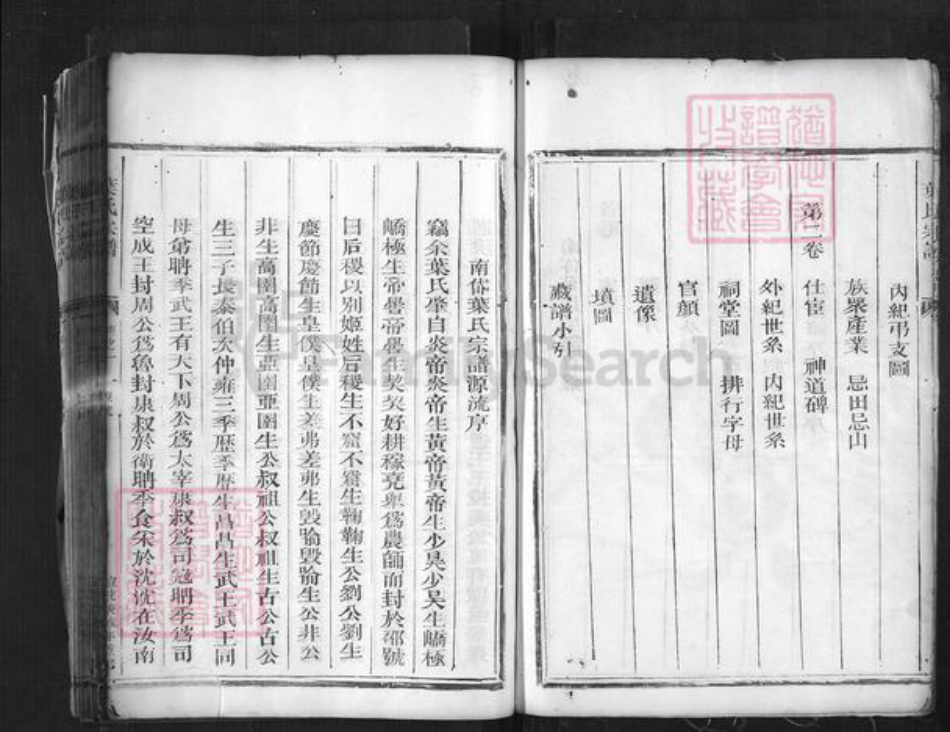 內紀弔支圖
族衆產業　忌田忌山
第二卷
仕宦　神道碑
外紀世系　內紀世系
祠堂圖　排行字母
官顏
遺像
墳圖
藏譜小引
南岱葉氏宗譜源流序
竊余葉氏肇自炎帝炎帝生黃帝黃帝生少昊少昊生蟜極
蟜極生帝嚳帝嚳生契契好耕稼堯舉爲農師而封於邰號
曰后稷以別姬姓后稷生不窋不窋生鞠鞠生公劉公劉生
慶節慶節生皇僕皇僕生差弗差弗生毀喻毀喻生公非公
非生高圉高圉生亞圉亞圉生公叔祖公叔祖生古公古公
生三子長泰伯次仲雍三季歷季歷生昌昌生武王武王同
母弟聃季武王有天下周公爲太宰康叔爲司冦聃季爲司
空成王封周公爲魯封康叔於衛聃季食采於沈沈在汝南
葉氏宗譜
FamilySearch